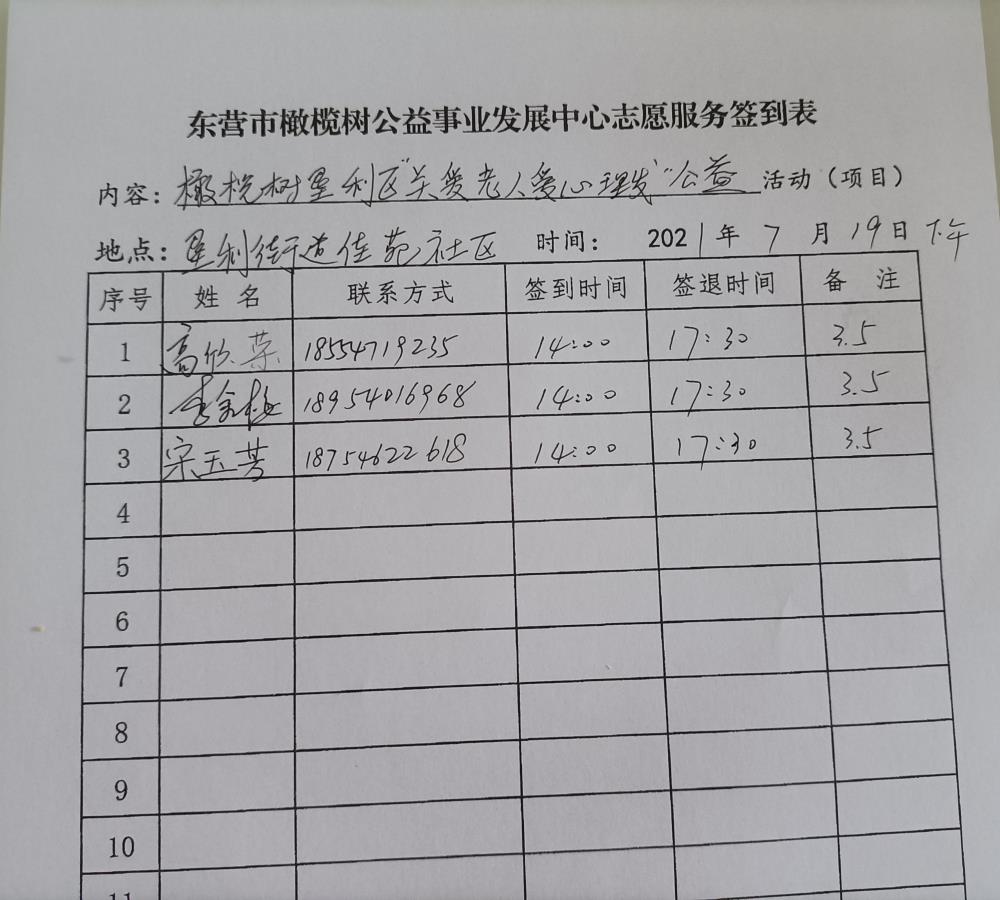 东营市橄榄树公益事业发展中心志愿服务签到表
内容：橄榄树垦利区“关爱老人爱心理发”公益 活动（项目）
地点：垦利街道佳苑社区 时间： 2021年7月19日下午
序号 姓名 联系方式 签到时间 签退时间 备注
1 高欣荣 18554719235 14:00 17:30 3.5
2 李金梅 18954016968 14:00 17:30 3.5
3 宋玉芳 18754622618 14:00 17:30 3.5
4
5
6
7
8
9
10
11